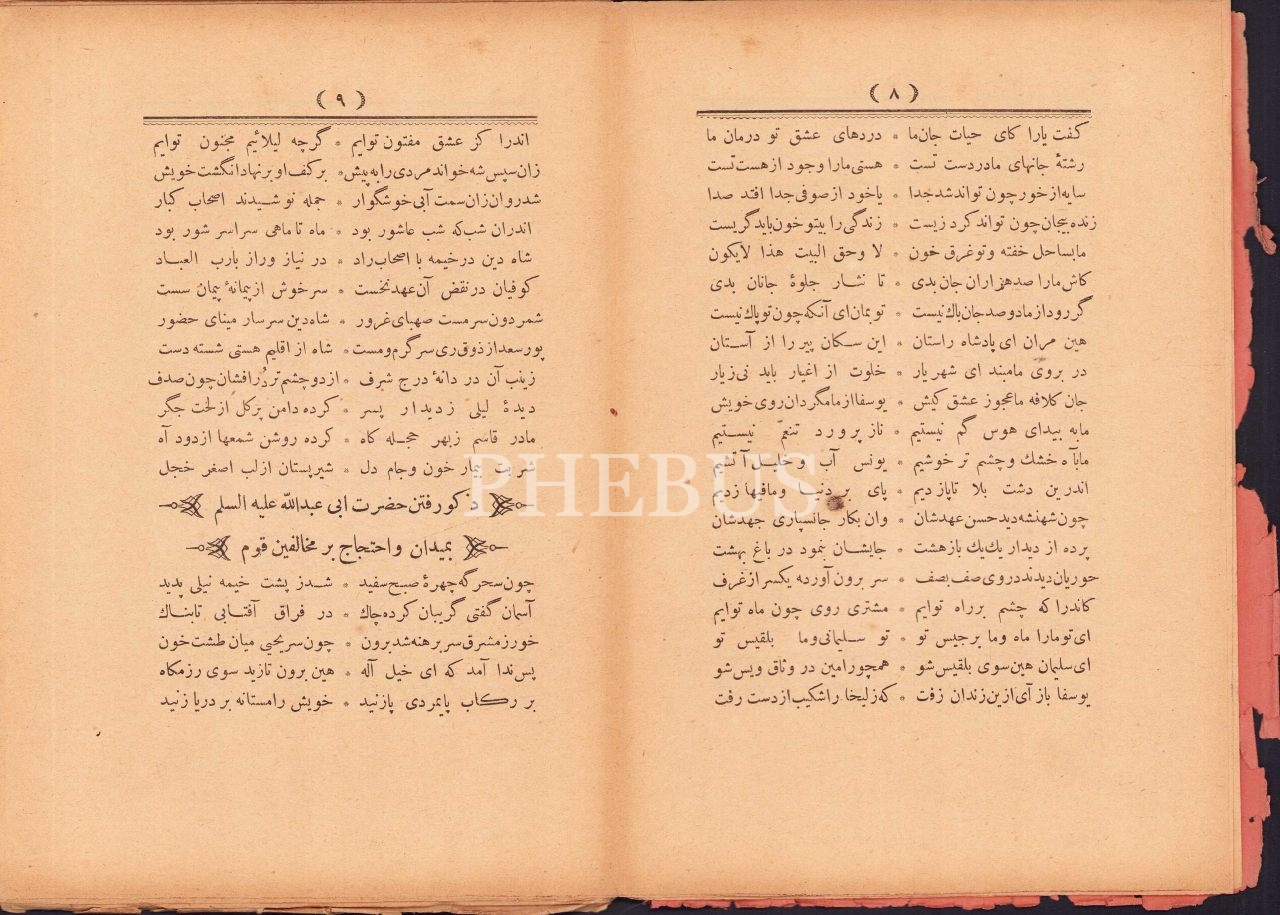 ( ٨ )
كفت يارا كاى حيات جان‌ما * دردهاى عشق تو درمان ما
رشتهٔ جانهاى مادردست تست * هستى مارا وجود از هست تست
سايه از خور چون تواند شد جدا * ياخود از صوفى جدا افتد صدا
زنده بيجان چون تواند كرد زيست * زندگى را بيتو خون بايد گريست
مابساحل خفته وتو غرق خون * لا وحق البيت هذا لايكون
كاش مارا صدهزاران جان بدى * تا نشار جلوهٔ جانان بدى
گر رود از مادوصد جان باك نيست * تو بمان اى آنكه چون تو پاك نيست
هين مران اى پادشاه راستان * اين سكان پير را از آستان
در بروى مامبند اى شهريار * خلوت از اغيار بايد نى زيار
جان كلافه ماعجوز عشق كيش * يوسفا از مامگردان روى خويش
مابه بيداى هوس گم نيستيم * ناز پرورد تنعّم نيستيم
مابآه خشك وچشم تر خوشيم * يونس آب وخليل آتشيم
اندرين دشت بلا تاپا زديم * پاى بر دنيا ومافيها زديم
چون شهنشه ديد حسن عهدشان * وان بكار جانسپارى جهدشان
پرده از ديدار يك يك بازهشت * جايشان بنمود در باغ بهشت
حوريان ديدند در وى صف بصف * سر برون آورده يكسر از غرف
كاندرا كه چشم برراه توايم * مشترى روى چون ماه توايم
اى تو مارا ماه وما برجيس تو * تو سليمانى وما بلقيس تو
اى سليمان هين سوى بلقيس شو * همچو رامين در وثاق ويس شو
يوسفا باز آى ازين زندان زفت * كه زليخا را شكيب از دست رفت
( ٩ )
اندرا كز عشق مفتون توايم * گرچه ليلائيم مجنون توايم
زان سپس شه خواند مردى رابه پيش * بركف او برنهاد انگشت خويش
شد روان زان سمت آبى خوشگوار * جمله نوشيدند اصحاب كبار
اندران شب كه شب عاشور بود * ماه تا ماهى سراسر شور بود
شاه دين در خيمه با اصحاب راد * در نياز وراز بارب العباد
كوفيان در نقض آن عهد نخست * سرخوش از پيمانهٔ پيمان سست
شمر دون سرمست صهباى غرور * شاه دين سرسار ميناى حضور
پور سعد از ذوق رى سرگرم ومست * شاه از اقليم هستى شسته دست
زينب آن در دانهٔ درج شرف * از دو چشم تر دُر افشان چون صدف
ديدهٔ ليلى زديدار پسر * كرده دامن پركل از لخت جگر
مادر قاسم زبهر حجله كاه * كرده روشن شمعها از دود آه
شربت بيمار خون وجام دل * شير پستان از لب اصغر خجل
ذكور رفتن حضرت ابى عبدالله عليه السلم
بميدان واحتجاج بر مخالفين قوم
چون سحرگه چهرهٔ صبح سفيد * شد ز پشت خيمه نيلى پديد
آسمان گفتى گريبان كرده چاك * در فراق آفتابى تابناك
خور ز مشرق سر برهنه شد برون * چون سر يحيى ميان طشت خون
پس ندا آمد كه اى خيل آله * هين برون تازيد سوى رزمكاه
بر ركاب پايمردى پازنيد * خويش رامستانه بر دريا زنيد
PHEBUS